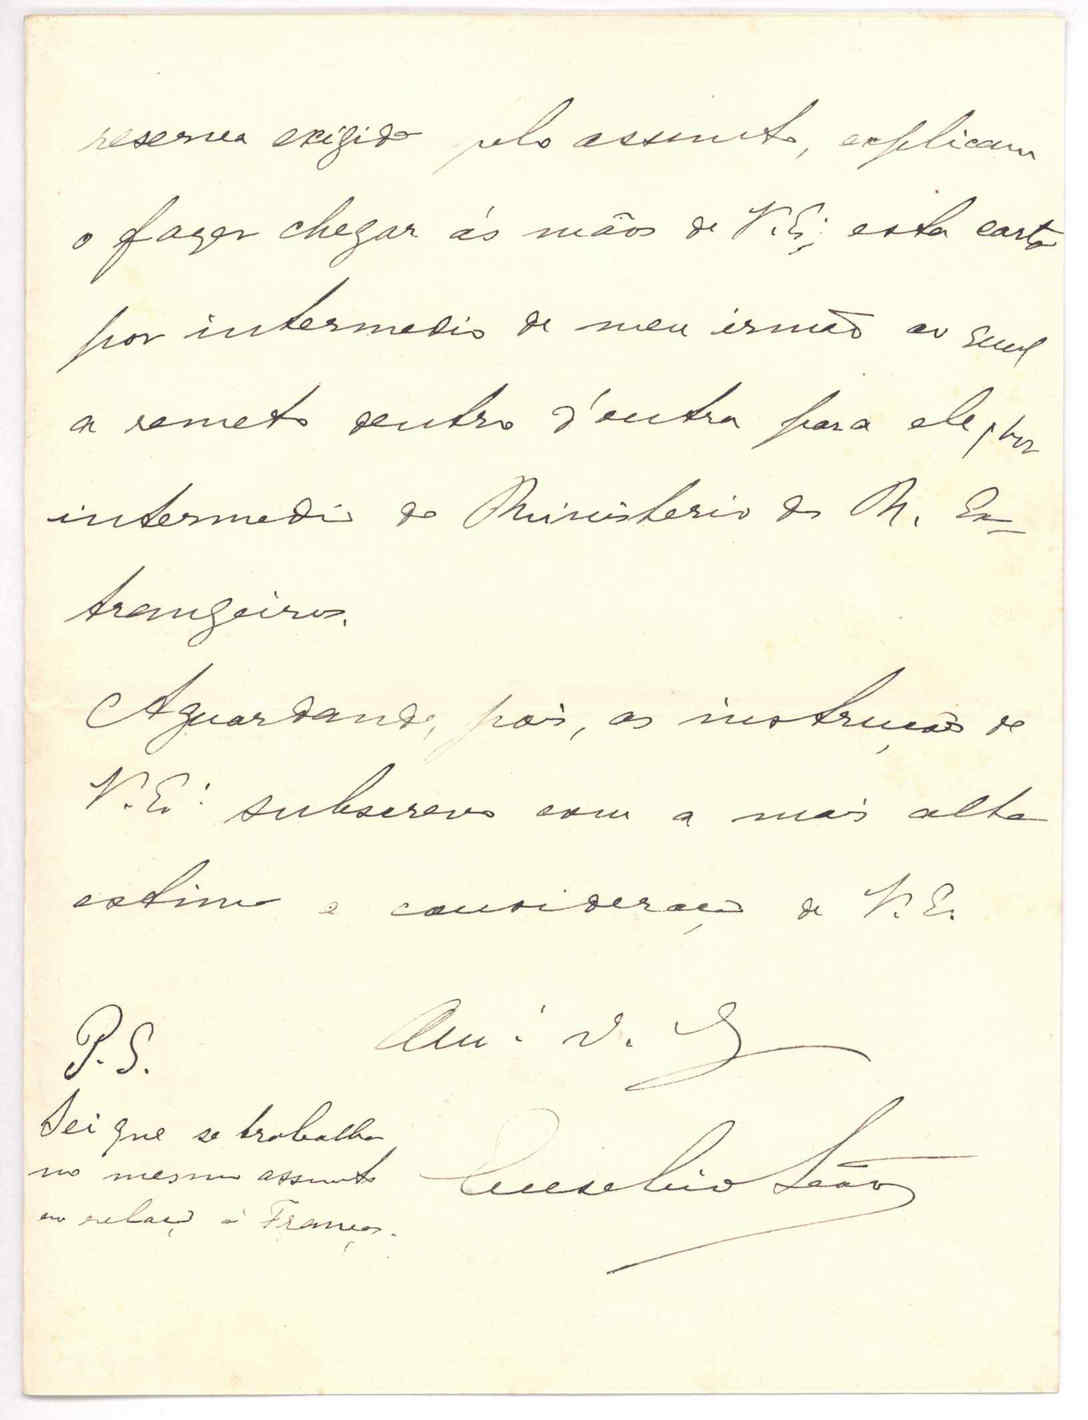 reserva exigida pelo assunto, explicam
o fazer chegar ás mãos de V. Eª; esta carta
por intermedio de meu irmão ao qual
a remeto dentro d'outra para ele, por
intermedio do Ministerio do N. Ex-
trangeiros.
Aguardando, pois, as instruções de
V. Eª: subscrevo com a mais alta
estima e consideração de V. E.
Amº V.
Eusebio Leão
P.S.
Sei que se trabalha
no mesmo assunto
em relação á França.